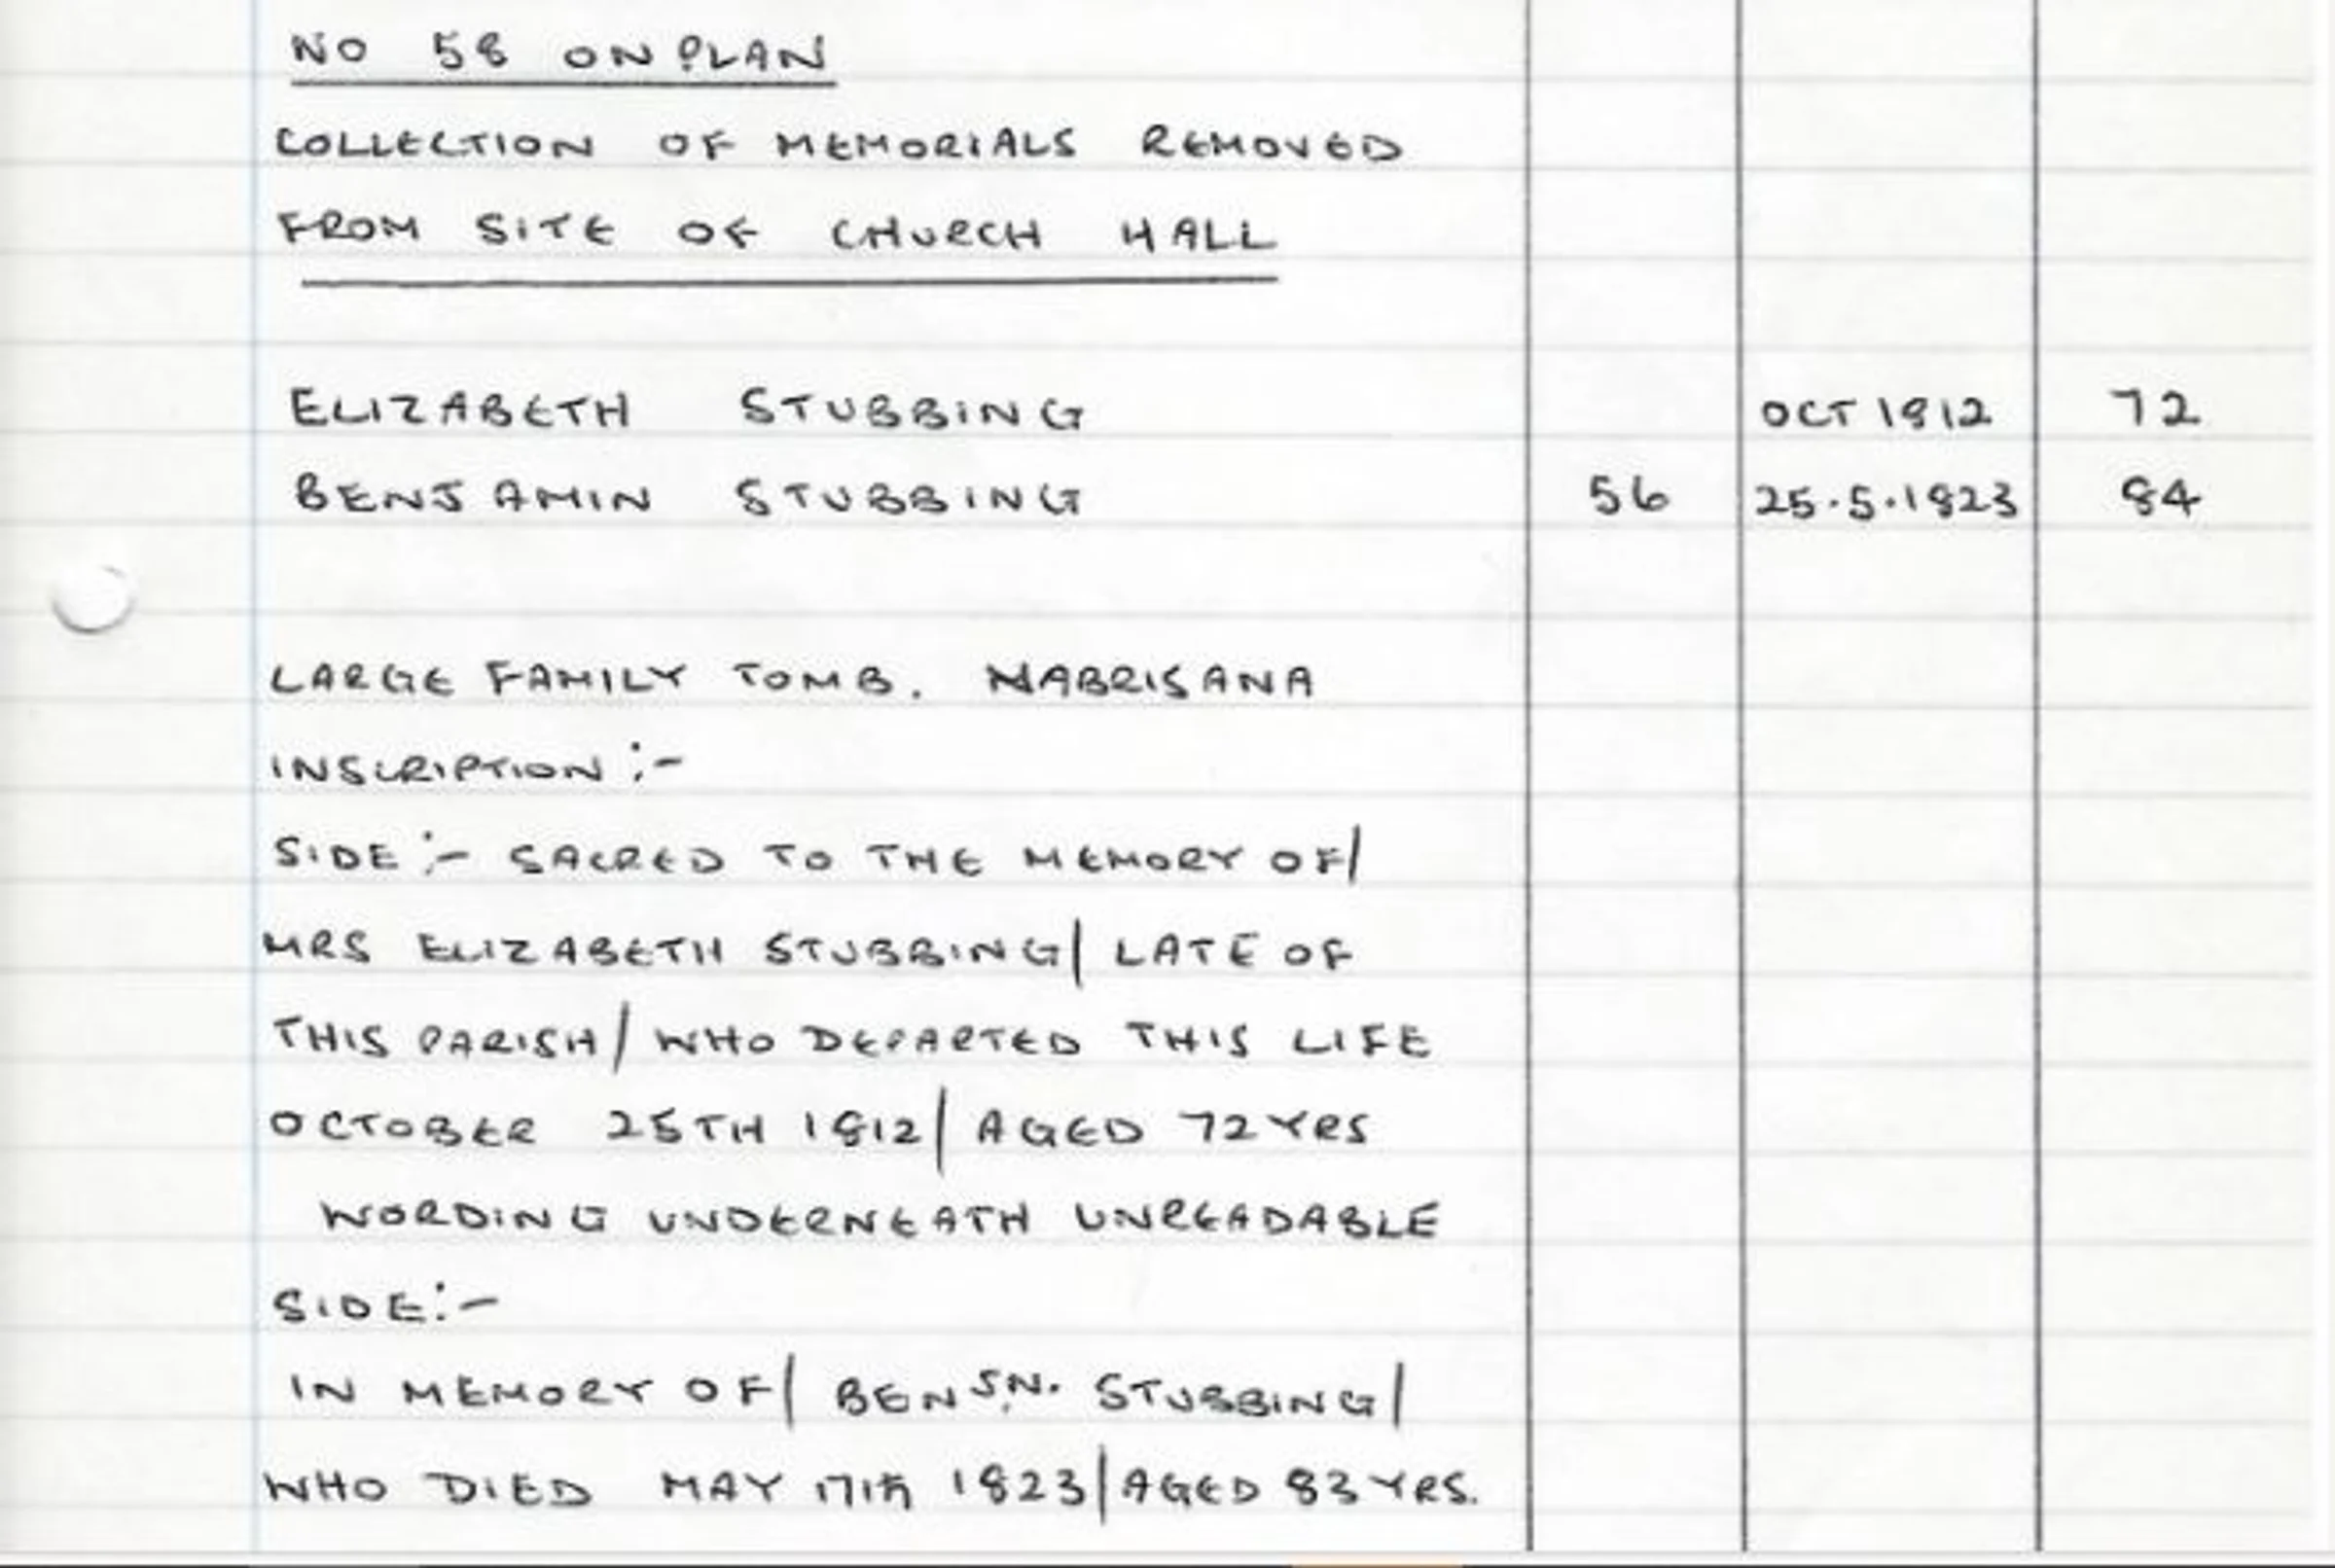 NO 58 ON PLAN
COLLECTION OF MEMORIALS REMOVED
FROM SITE OF CHURCH HALL
ELIZABETH STUBBING OCT 1812 72
BENJAMIN STUBBING 56 25.5.1823 84
LARGE FAMILY TOMB. NABRISANA
INSCRIPTION :-
SIDE :- SACRED TO THE MEMORY OF/
MRS ELIZABETH STUBBING/ LATE OF
THIS PARISH/ WHO DEPARTED THIS LIFE
OCTOBER 25TH 1812/ AGED 72 YRS
WORDING UNDERNEATH UNREADABLE
SIDE :-
IN MEMORY OF/ BENJN. STUBBING/
WHO DIED MAY 17TH 1823/ AGED 83 YRS.